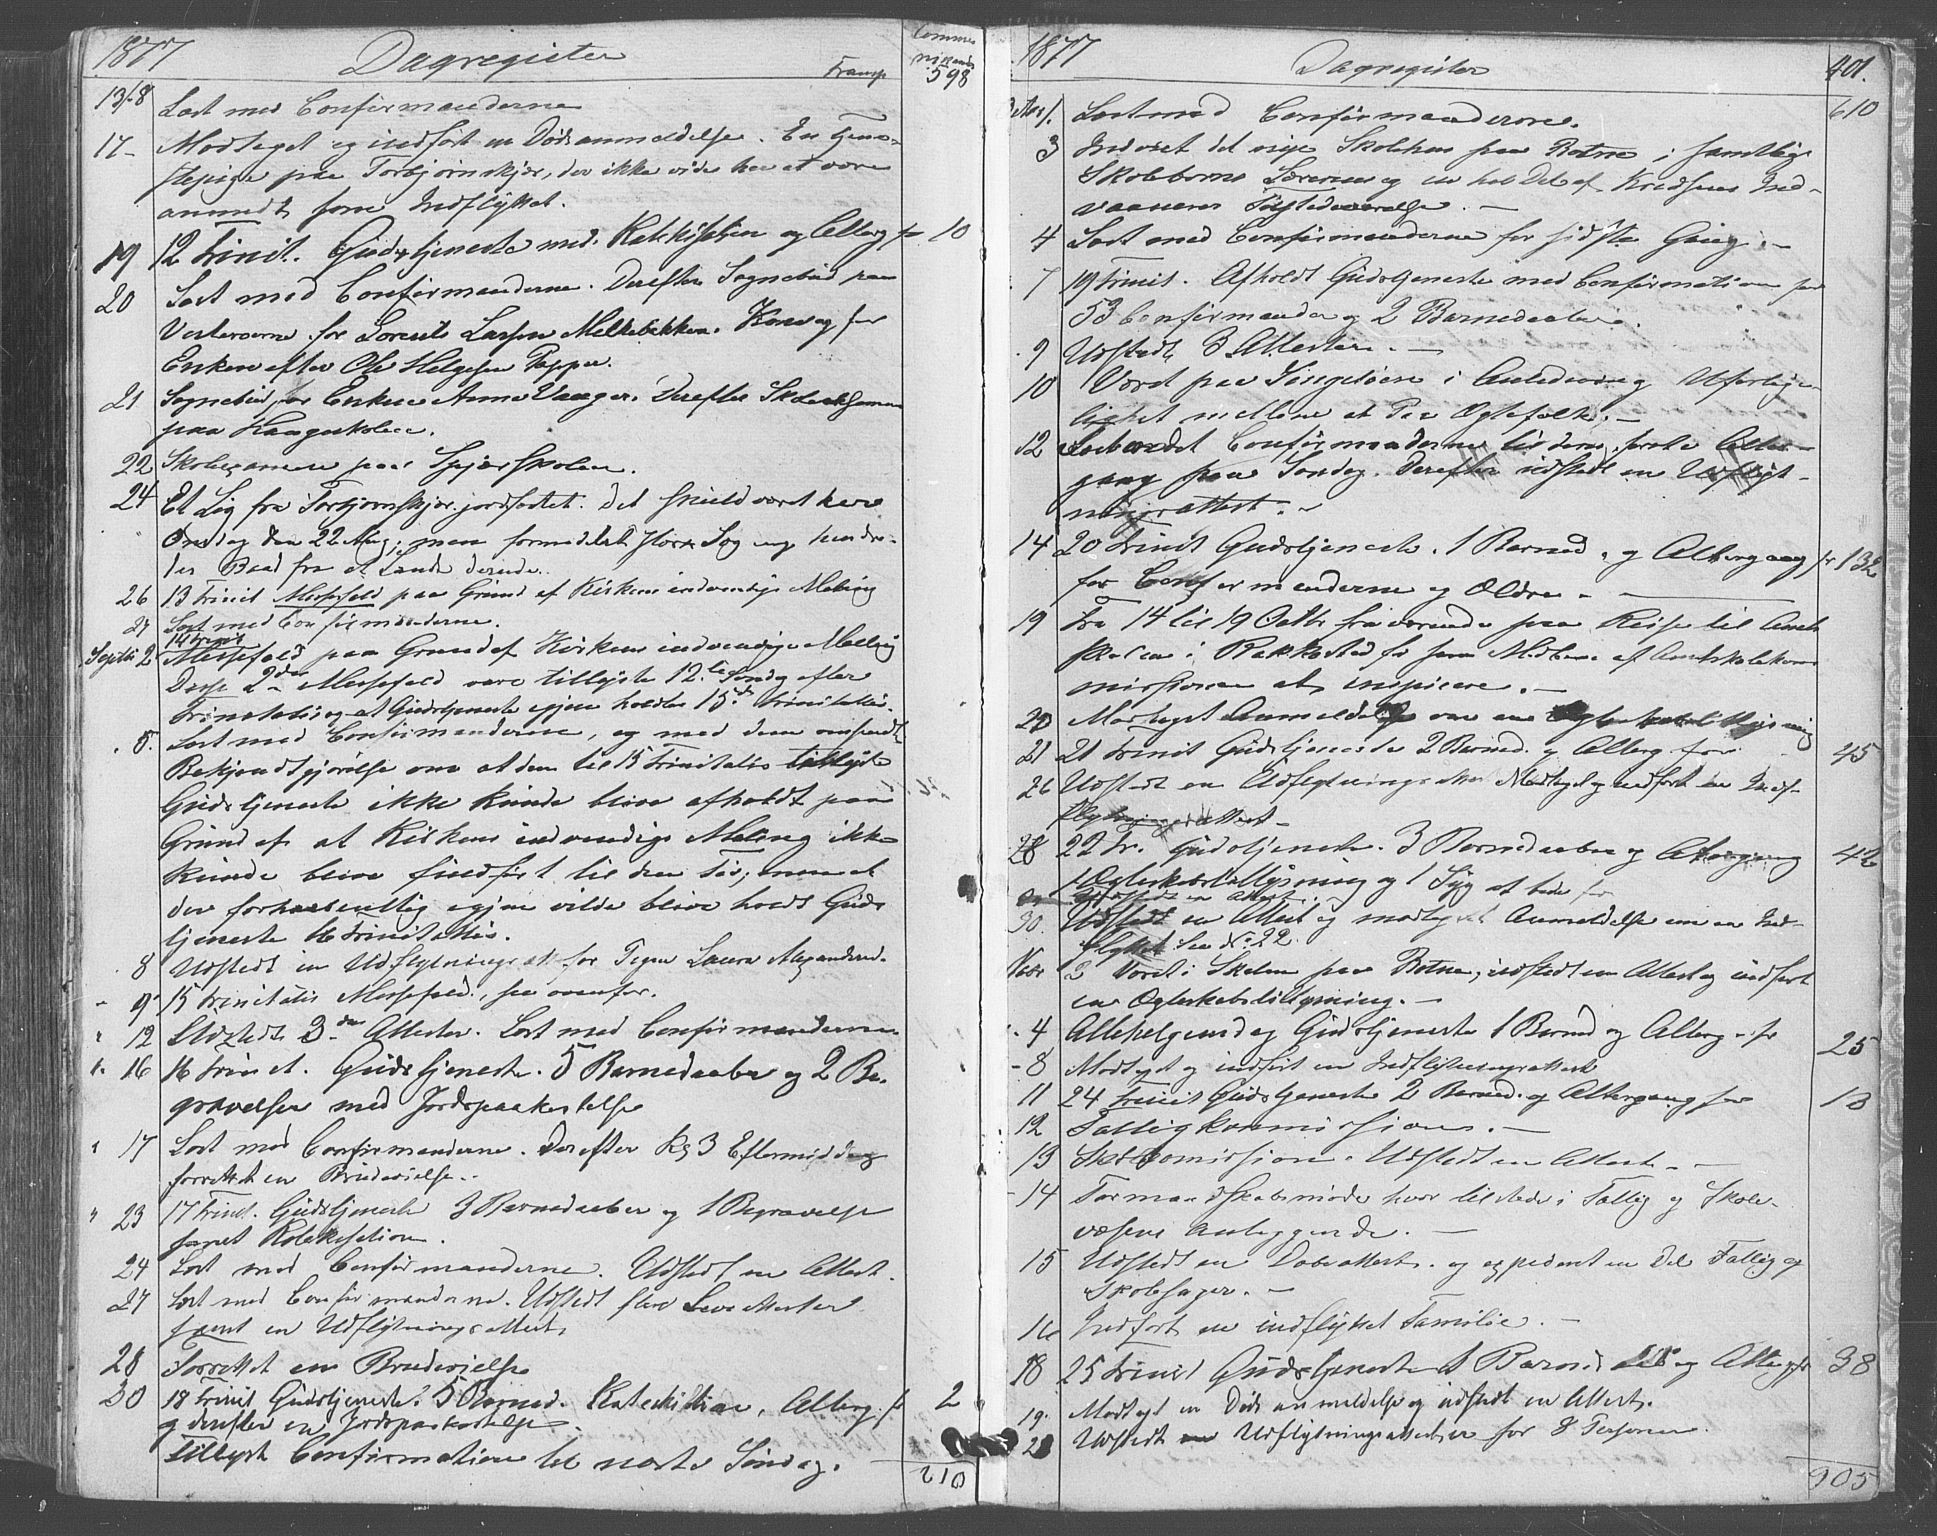 1877 Dagregister Transp
Communicants
598
13/8 Læst med Confirmanderne
17- Modtaget og indført en Dødsanmeldelse. En Tjene-
stepige paa Torbjørnskjær, der ikke vides her at være
anmeldt som Indflyttet.
19 12 Trinit. Gudstjeneste med Katekisation og Alterg. for 10
20 Læst med Confirmanderne. Derefter Sognebud paa
Vesterøerne for Lorents Larsen Melkebækken. Kone og for
Enken efter Ole Helgesen Papper.
21 Sognebud for Enken Anne Vauger. Derefter Skoleexamen
paa Haugeskolen.
22 Skoleexamen paa Spjær Skolen.
24 Et Lig fra Torbjørnskjær jordfæstet. Det skulde været her
Onsdag den 22 Aug; men formedelst større Søg ug hindre-
des Baad fra at lande derude.
26 13 Trinit Messefald paa Grund af Kirkens indvendige Maling
27 Læst med Confirmanderne.
Septbr 2 14 Trinit Messefald paa Grund af Kirkens indvendige Maling
Disse 2de Messefald vare tillyste 12te Søndag efter
Trinitatis og at Gudstjeneste igjen holdtes 15de Trinitatis.
5. Læst med Confirmanderne, og med dem omsendt
Bekjendtgjørelse om at den til 15 Trinitatis tillyste
Gudstjeneste ikke kunde blive afholdt paa
Grund af at Kirkens indvendige Maling ikke
kunde blive fuldført til den Tid; men at
der forhaabentlig igjen vilde blive holdt Guds
tjeneste 16 Trinitatis.
8 Udstedt en Udflytningsatt for Pigen Laura Alexandersd.
9 15 Trinitatis Messefald, see ovenfor.
12 Udstedt 3de Attester. Læst med Confirmanderne
16 16 Trinit. Gudstjeneste. 5 Barnedaaber og 2 Be-
gravelser med Jordspaakastelse
17 Læst med Confirmanderne. Derefter Kl 3 Eftermiddag
forrettet en Brudevielse.
23 17 Trinit. Gudstjeneste 3 Barnedaaber og 1 Begravelse
samt Katekisation.
24 Læst med Confirmanderne. Udstedt en Attest.
27 Læst med Confirmanderne. Udstedt flere Attester
samt en Udflytningsattest.
28 Forrettet en Brudevielse
30 18 Trinit Gudstjeneste. 5 Barned. Katekisation, Alterg. for 2
og derefter en Jordspaakastelse
tillyst Confirmation til næste Søndag.
610
1877 Dagregister 401.
Octbr 1. Læst med Confirmanderne. 610
3 Indviet det nye Skolehus paa Botne i samtlige
Skolebørns Lærerens og en hel Del af Kredsens Ind-
vaaneres Tilstedeværelse. -
4 Læst med Confirmanderne for sidste Gang. -
7 19 Trinit. Afholdt Gudstjeneste med Confirmation paa
53 Confirmander og 2 Barnedaaber.
9 Udstedt 3 Attester. -
10 Været paa Singeløen i Anledning Uforlige-
lighed mellem et Par Ægtefolk. -
12 Forberedet Confirmanderne til deres første Alter-
gang paa Søndag. Derefter udstedt en Udflyt-
ningsattest. -
14 20 Trinit Gudstjeneste. 1 Barned. og Altergang for 132
for Confirmanderne og Ældre. -
19 Fra 14 til 19 Octbr fraværende paa Reise til Amt
skolen i Rakkestad for som Medlem af Amtskolekom
missionen at inspicere. -
20 Modtaget Anmeldelse om en Ægteskabstillysning
21 21 Trinit Gudstjeneste 2 Barned. og Alterg for 45
26 Udstedt en Udflytningsattest Modtaget og indført en Ind-
flytningsattest -
28 22 Tr. Gudstjeneste. 3 Barnedaaber og Altergang 42
1 Ægteskabstillysning og 1 Syg at bede for
30. Udstedt en Attest og modtaget Anmeldelse om en Ind-
flyttet See No 22.
Novbr 3 Været i Skolen paa Botne, udstedt en Attest og indført
en Ægteskabstillysning. -
4 Allehelgensdag Gudstjeneste 1 Barned og Alterg. for 25
8 Modtaget og indført en Indflytningsattest
11 24 Trinit Gudstjeneste 2 Barned. og Altergang for 13
12 Fattigkommission. -
13 Skolekomission. Udstedt en Attest. -
14 Formandskabsmøde hvor tilstede i Fattig og Skole-
væsenet anliggende. -
15 Udstedt en Døbeattest. og expederet en Del Fattig og
Skolesager. -
16 Indført en indflyttet Familie. -
18 25 Trinit Gudstjeneste 1 Barned og Alterg for 38
19. Modtaget en Dødsanmeldelse og udstedt en Attest.
21 Udstedt Udflytningsattester for 8 Personer.
905